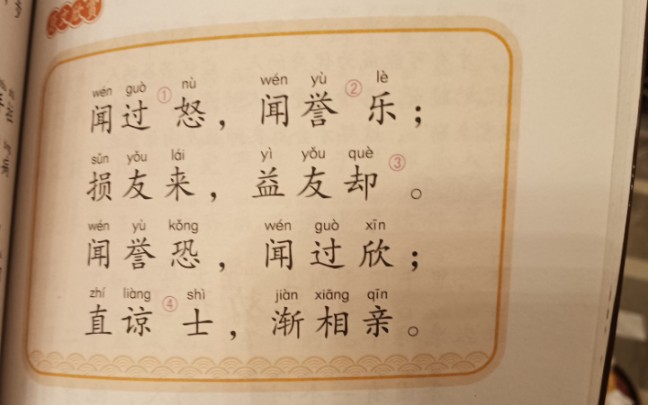 wén guò nù wén yù lè
闻过①怒，闻誉②乐；
sǔn yǒu lái yì yǒu què
损友来，益友却③。
wén yù kǒng wén guò xīn
闻誉恐，闻过欣；
zhí liàng shì jiàn xiāng qīn
直谅④士，渐相亲。